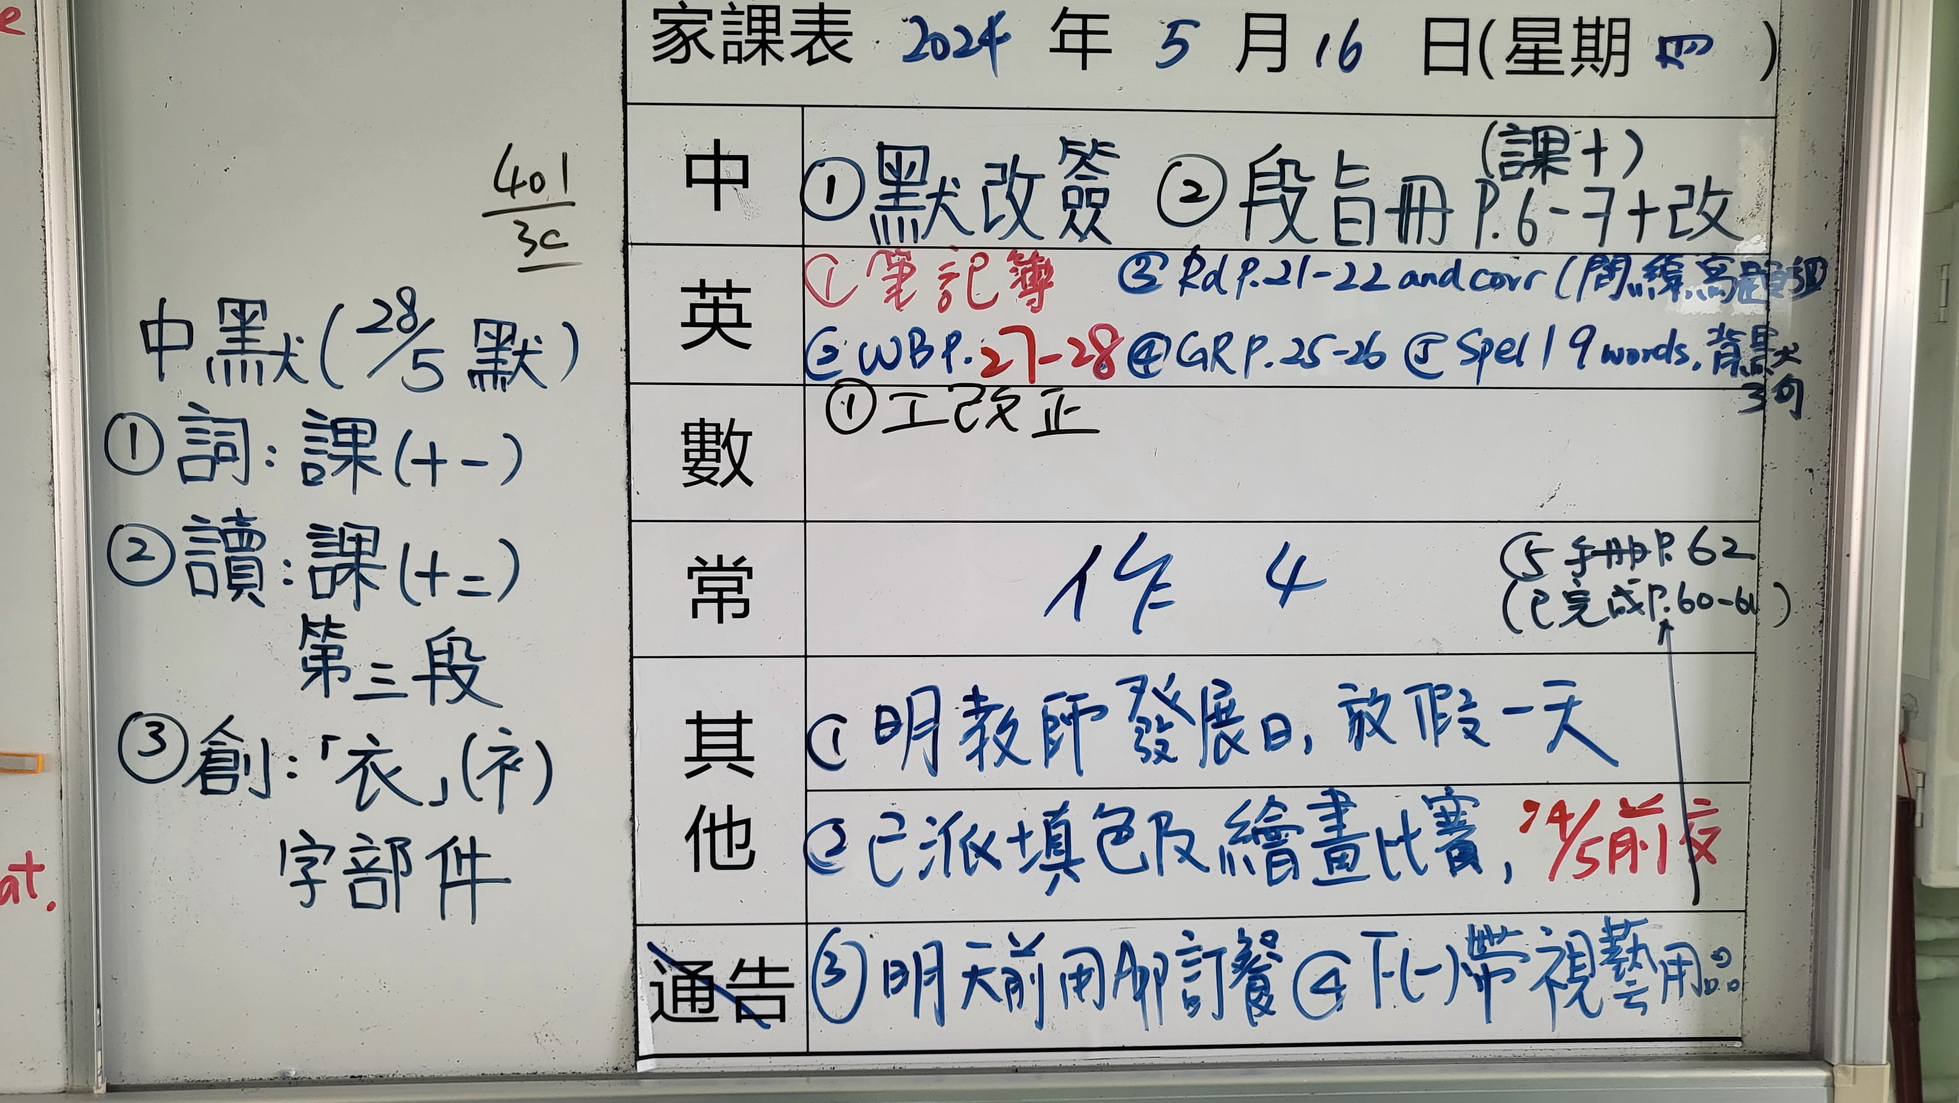 e
at.
401
3C
中默(28/5默)
①詞:課(十一)
②讀:課(十二)
第三段
③創:「衣」(衤)
字部件
家課表 2024 年 5 月 16 日(星期四)
中 ①默改簽 ②段旨冊 P.6-7+改
(課十)
英 ①筆記簿 ③Rd P.21-22 and corr
②WB P.27-28 ④GR P.25-26 ⑤Spell 9 words, 背默
3句
數 ①工改正
常 作 4
⑤手冊P.62
(已完成P.60-61)
其他 ①明教師發展日,放假一天
②已派填色及繪畫比賽,24/5前交
通告 ③明天前用App訂餐④下(一)帶視藝用品